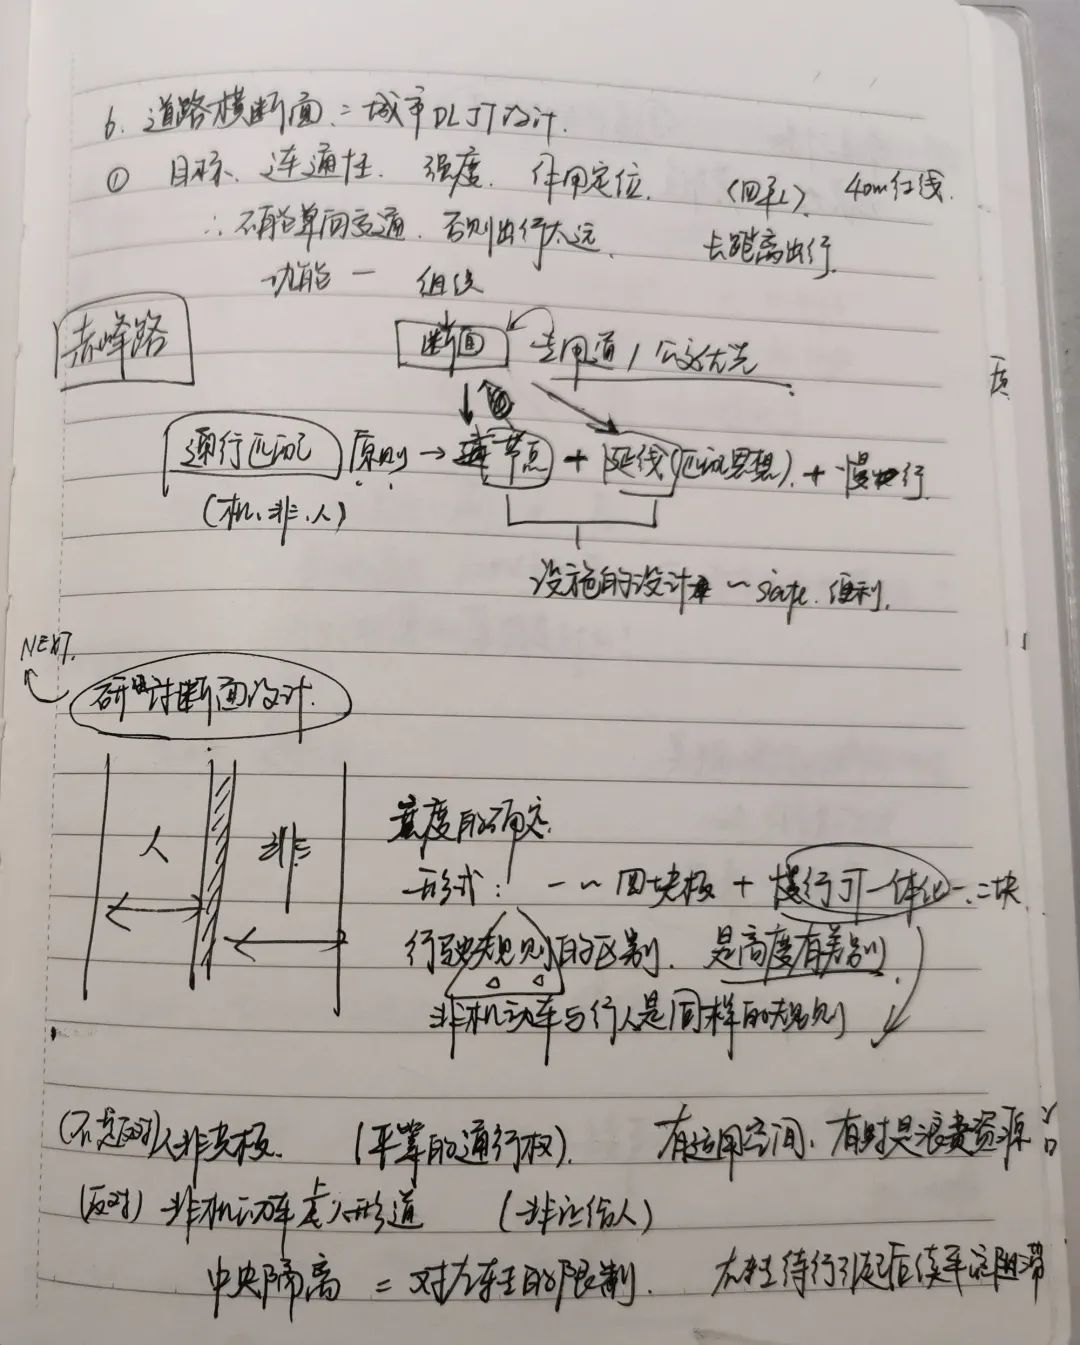 6. 道路横断面 = 城市DL JT设计.
① 目标、连通性. 强度. 作用定位. (四平L). 40m红线.
∴ 不能单向交通. 否则出行太远. 长距离出行.
功能 — 组织
赤峰路
断面 专用道 / 公交优先
通行匹配 原则 → 节点 + 延线(匹配思想). + 慢行
(机、非、人)
设施的设计 ~ safe. 便利.
NEXT.
研讨断面设计.
人 非
宽度的确定.
形式: 一 ~ 四块板 + 慢行JT一体化 一.二块
行驶规则的区别. 是高度有差别.
非机动车与行人是同样的规则
(不是反对) 人非共板. (平等的通行权). 有适用空间, 有时是浪费资源
(反对) 非机动车上人行道 (非让给人)
中央隔离 = 对左转车的限制. 待行引起后续车流阻滞